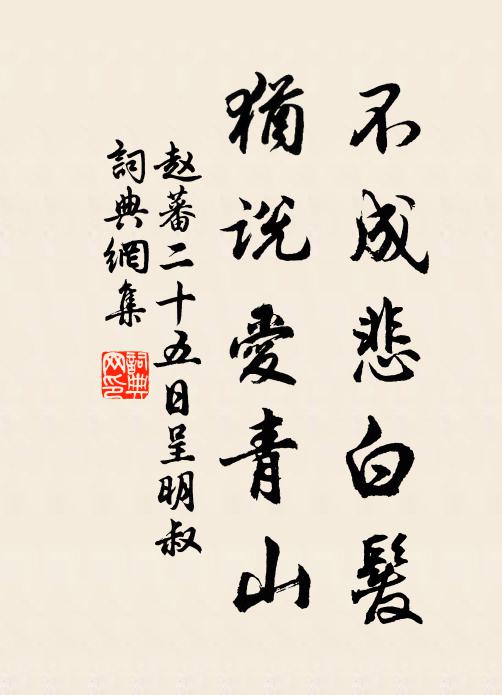 不成悲白髮
猶說愛青山
赵蕃二十五日呈明叔
詞典網集
詞典网印